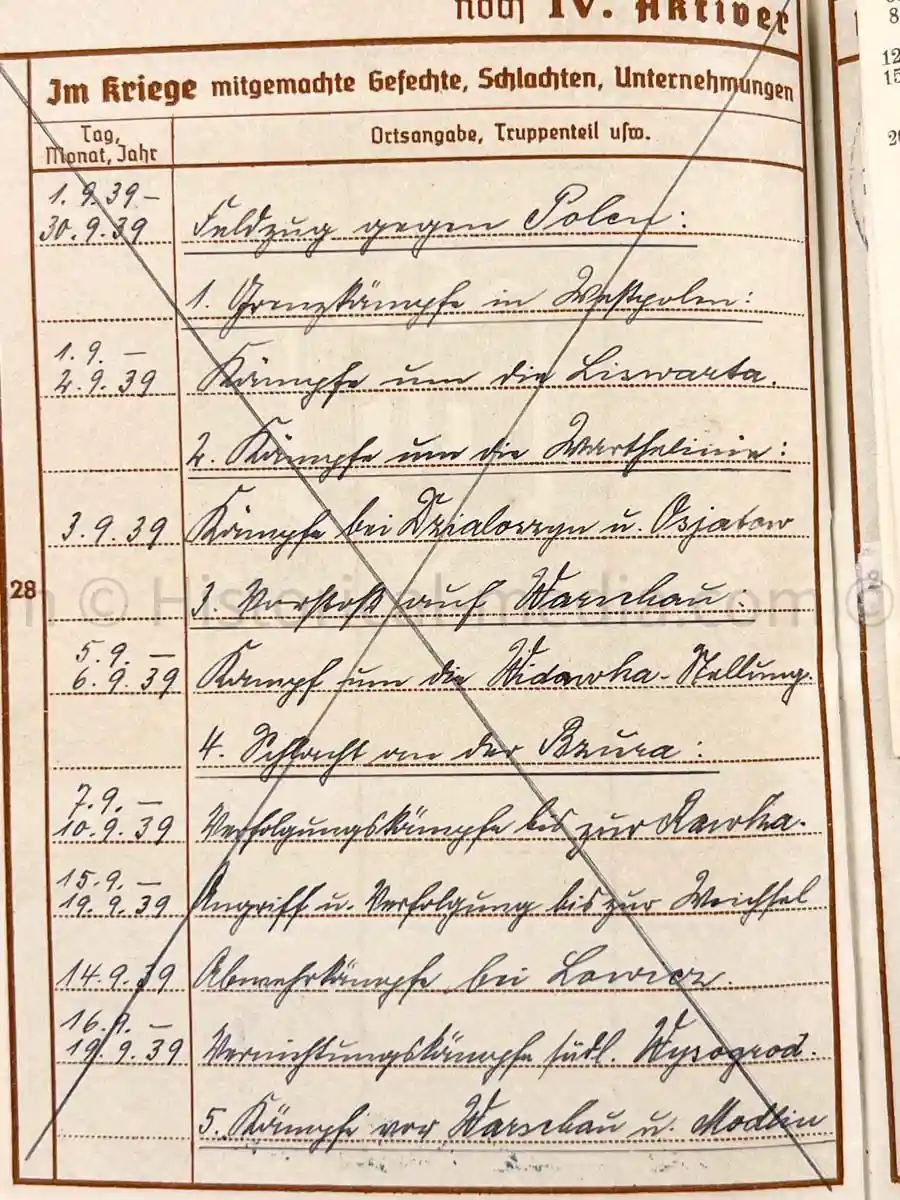 noch IV. Aktiver
Im Kriege mitgemachte Gefechte, Schlachten, Unternehmungen
Tag,
Monat, Jahr
Ortsangabe, Truppenteil usw.
1.9.39–
30.9.39 Feldzug gegen Polen:
1. Grenzkämpfe in Westpolen:
1.9. –
2.9.39 Kämpfe um die Liswarta.
2. Kämpfe um die Warthelinie:
3.9.39 Kämpfe bei Dzialoszyn u. Osjakow
3. Vorstoß auf Warschau:
5.9. –
6.9.39 Kampf um die Widawka-Stellung.
4. Schlacht an der Bzura:
7.9. –
10.9.39 Verfolgungskämpfe bis zur Rawka.
15.9. –
19.9.39 Angriff u. Verfolgung bis zur Weichsel
14.9.39 Abwehrkämpfe bei Lowicz.
16.9. –
19.9.39 Vernichtungskämpfe südl. Wysogrod.
5. Kämpfe vor Warschau u. Modlin
28
© Historicalmedia.com ©
8
12
15